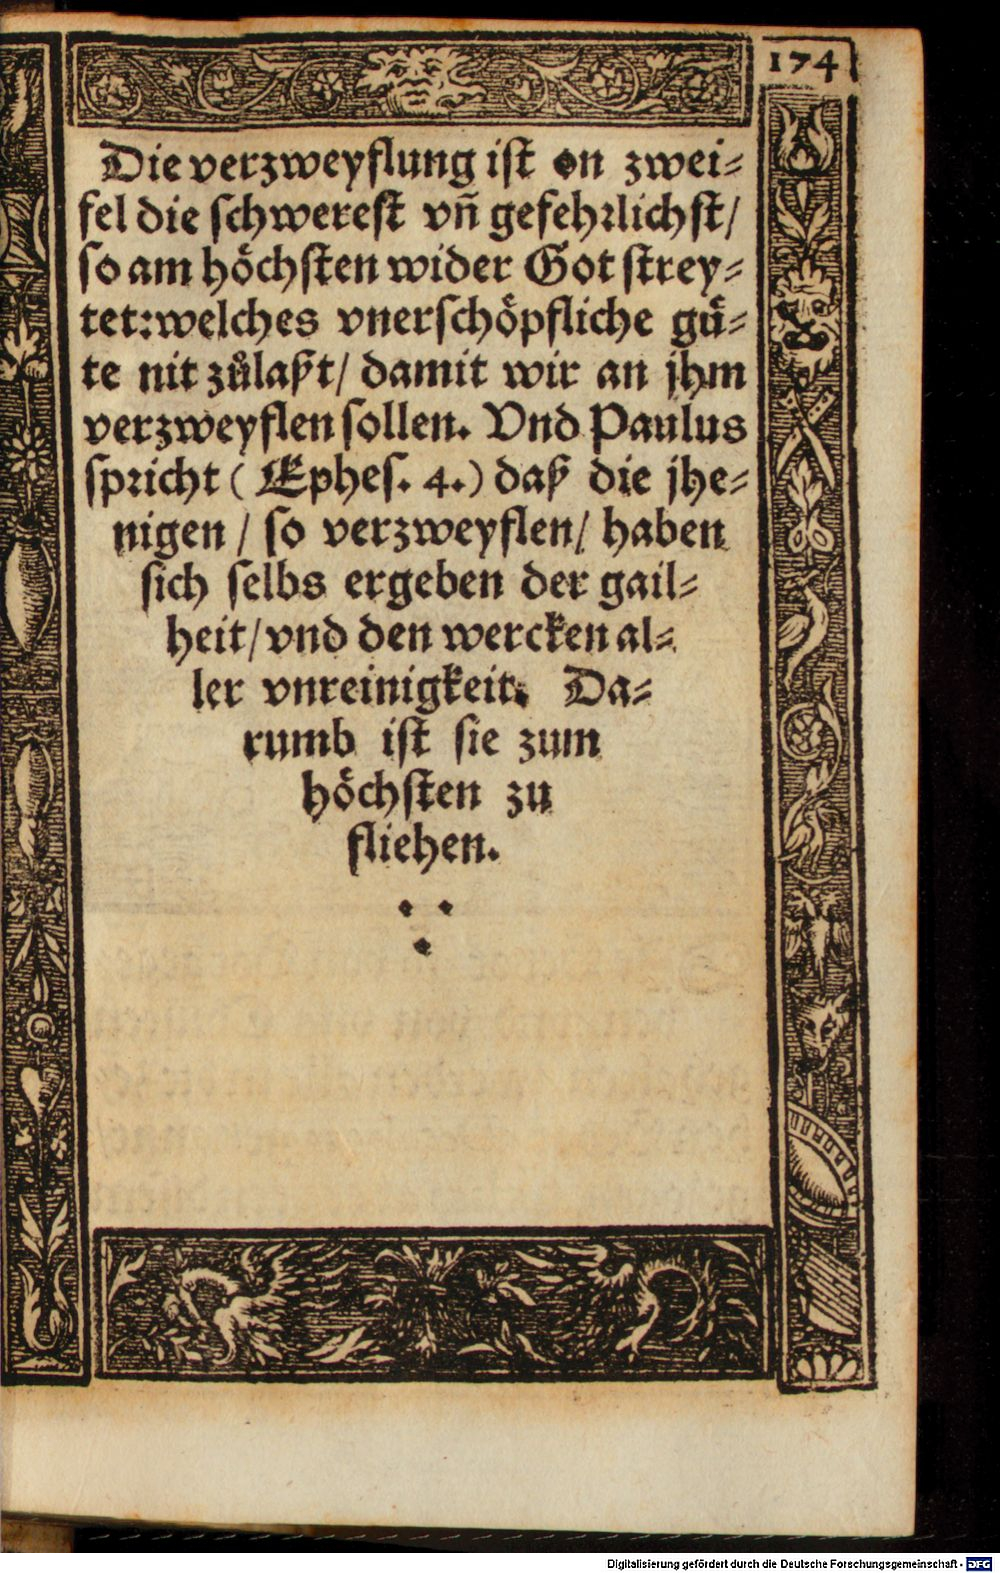 174
Die verzweyflung ist on zwei⸗
fel die schwerest vñ gefehrlichst/
so am höchsten wider Got strey⸗
tet: welches vnerschöpfliche guͤ⸗
te nit zůlaßt/ damit wir an jhm
verzweyflen sollen. Vnd Paulus
spricht (Ephes. 4.) daß die jhe⸗
nigen / so verzweyflen/ haben
sich selbs ergeben der gail⸗
heit/ vnd den wercken al⸗
ler vnreinigkeit. Da⸗
rumb ist sie zum
höchsten zu
fliehen.
Digitalisierung gefördert durch die Deutsche Forschungsgemeinschaft - DFG